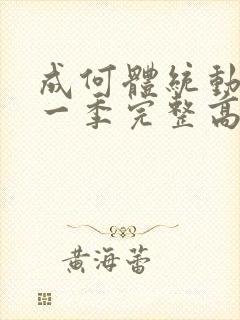 成何體統動
一季完整高
黃海蕾